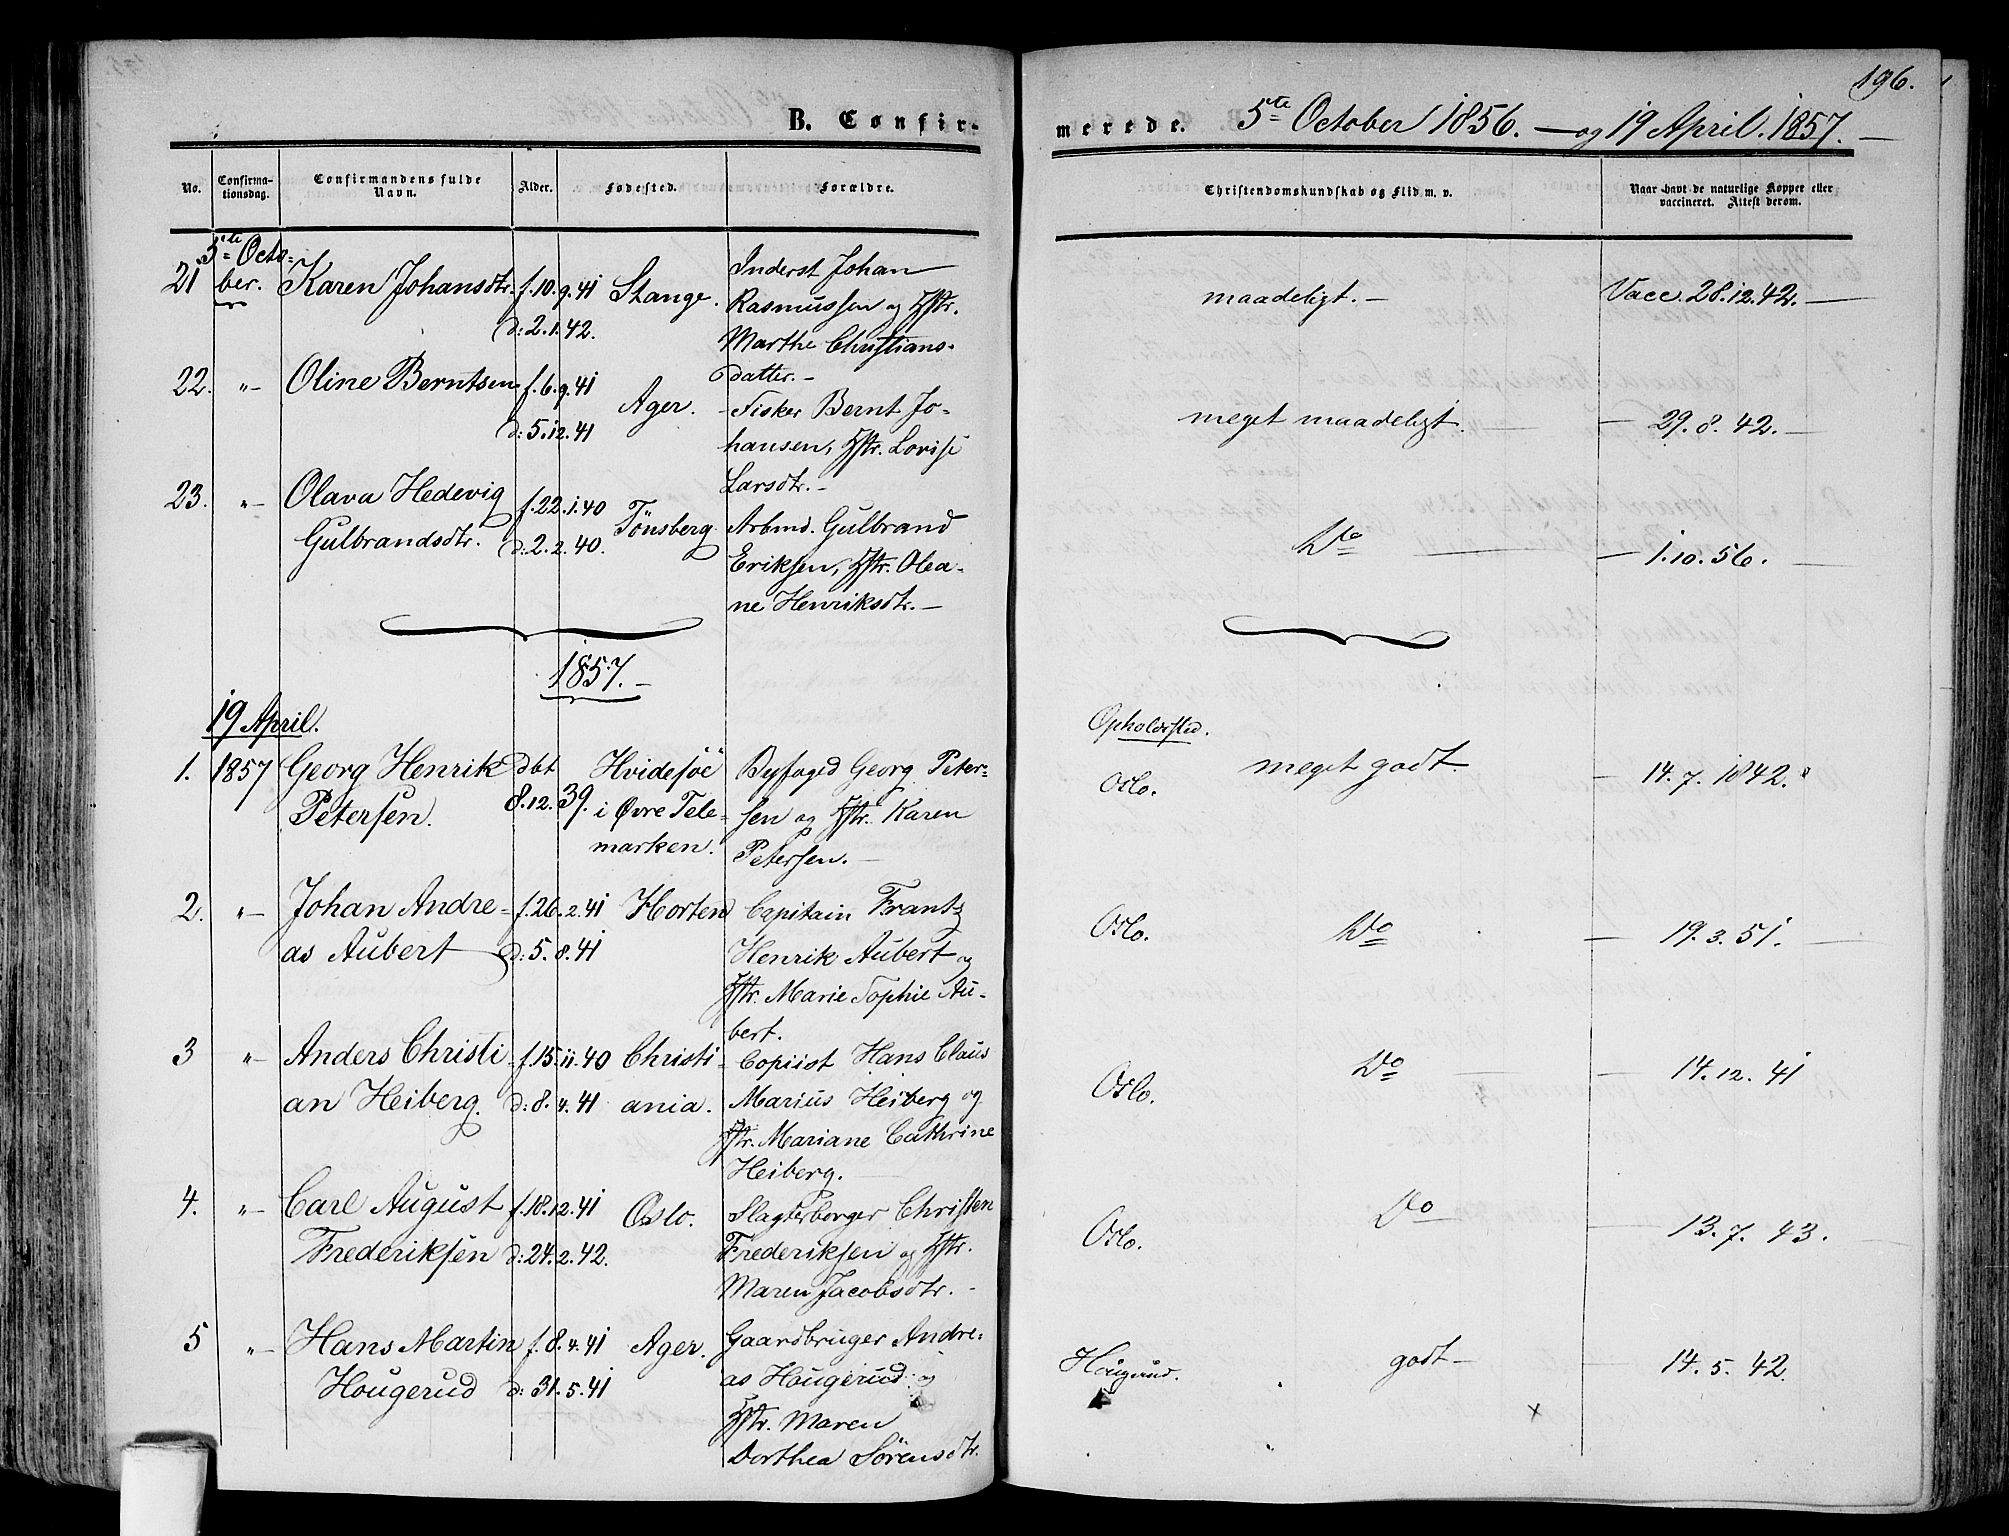 196.
B. Confir-
merede. 5te October 1856. — og 19 April. 1857. —
No.
Confirma-
tionsdag.
Confirmandens fulde
Navn.
Alder.
Fødested.
Forældre.
Christendomskundskab og Flid m. v.
Naar havt de naturlige Kopper eller
vaccineret. Attest derom.
5te Octo-
21 ber. Karen Johansdtr. f. 10. 9. 41 Stange. Inderst Johan
d: 2. 1. 42. Rasmussen og Hstr.
Marthe Christians-
datter. -
maadeligt. - Vacc. 28. 12. 42. —
22. " Oline Berntsen f. 6. 9. 41 Ager. Fisker Bernt Jo-
d: 5. 12. 41 hansen, Hstr. Lovise
Larsdtr. -
meget maadeligt. — 29. 8. 42. —
23. " Olava Hedevig f. 22. 1. 40 Tönsberg Arbmd. Gulbrand
Gulbrandsdtr. d: 2. 2. 40. Eriksen, Hstr. Olea-
ne Henriksdtr. —
Do — 1. 10. 56. —
1857. —
19 April.
Opholdssted.
1. 1857 Georg Henrik dbt Hvidesöe Byfoged Georg Peter-
Petersen. 8. 12. 39. i Øvre Tele- sen og Hstr. Karen
marken. Petersen. —
Oslo. meget godt. — 14. 7. 1842.
2. " Johan Andre- f. 26. 2. 41 Horten Capitain Frantz
as Aubert d: 5. 8. 41 Henrik Aubert og
Hstr. Marie Sophie Au-
bert.
Oslo. Do — 19. 3. 51. —
3 " Anders Christi- f. 15. 11. 40 Christi- Copiist Hans Claus
an Heiberg. d: 8. 4. 41 ania. Marius Heiberg og
Hstr. Mariane Cathrine
Heiberg. —
Oslo. Do — 14. 12. 41
4. " Carl August f. 18. 12. 41 Oslo. Slagterborger Christen
Frederiksen d: 24. 2. 42. Frederiksen og Hstr.
Maren Jacobsdtr. -
Oslo. Do — 13. 7. 43.
5 " Hans Martin f. 8. 4. 41 Ager. Gaardbruger Andre-
Hougerud d: 31. 5. 41 as Hougerud og
Hstr. Maren
Dorthea Sörensdtr.
Hougerud. godt — 14. 5. 42.